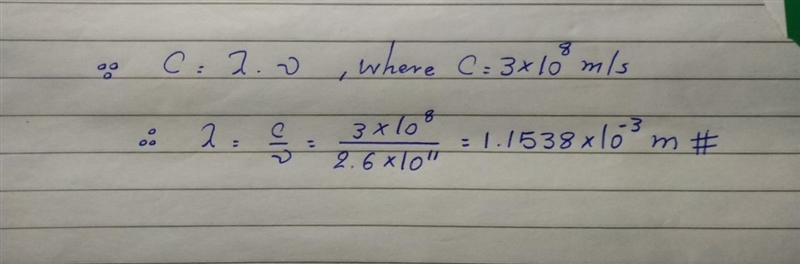 ∵ C = λ . ν , where C = 3×10⁸ m/s
∴ λ = c/ν = 3×10⁸/2.6×10¹¹ = 1.1538×10⁻³ m #